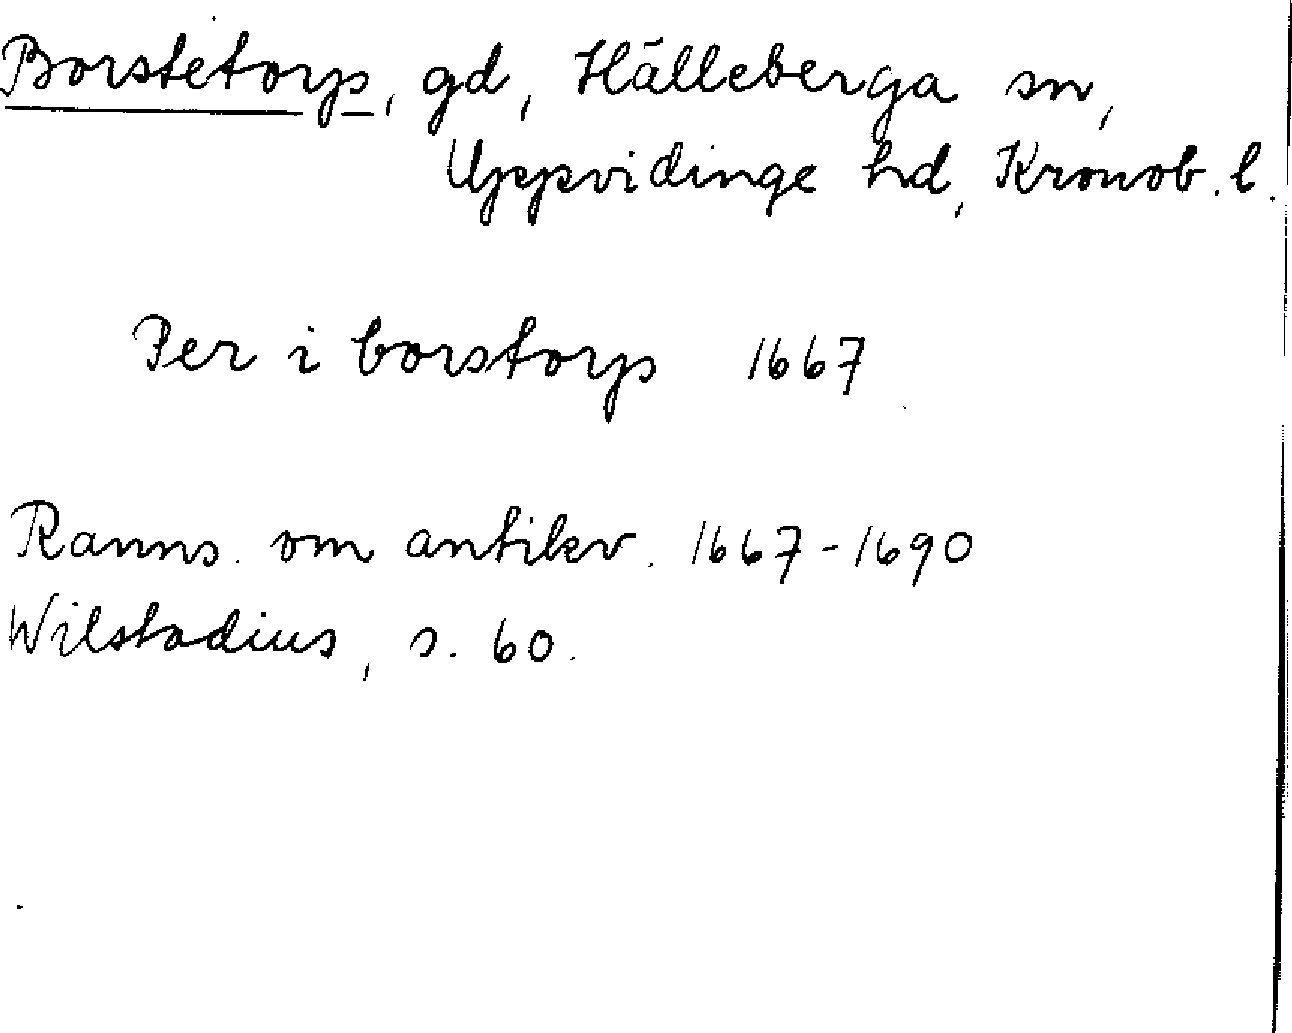 Borstetorp, gd, Hälleberga sn,
Uppvidinge hd, Kronob. l.
Per i borstorp 1667
Ranns. om antikv. 1667-1690
Wilstadius, s. 60.